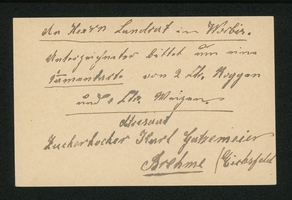 An Herrn Landrat in Worbis.
Unterzeichneter bittet um eine
Samenkarte von 2 Ztr. Roggen
und 1 Ztr. Weizen.
Zuckerkocher Karl Gatzemeier
Brehme (Eichsfeld